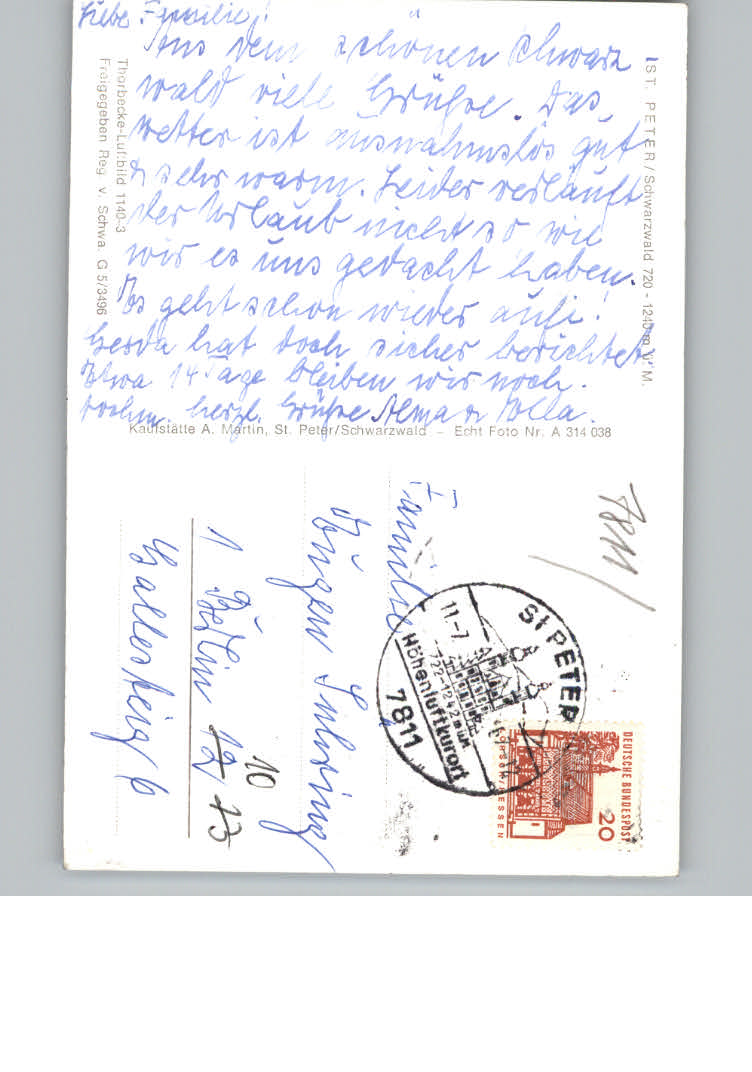 Liebe Familie!
Aus dem schönen Schwarz
wald viele Grüße. Das
Wetter ist ausnahmslos gut
& sehr warm. Leider verläuft
der Urlaub nicht so wie
wir es uns gedacht haben.
Es geht schon wieder aufi!
Gerda hat doch sicher berichtet.
Etwa 14 Tage bleiben wir noch.
Nochm. herzl. Grüße Alma &
ST. PETER / Schwarzwald 720 - 1240 m ü. M.
Thorbecke-Luftbild 1140-3
Freigegeben Reg. v. Schwa. G 5/3496
Kaufstätte A. Martin, St. Peter/Schwarzwald – Echt Foto Nr. A 314 038
7811
Familie
Eugen
1 Berlin 12
10
13
St PETER
11-7
722-1242 m ü M
Höhenluftkurort
7811
DEUTSCHE BUNDESPOST
20
LORSCH/HESSEN